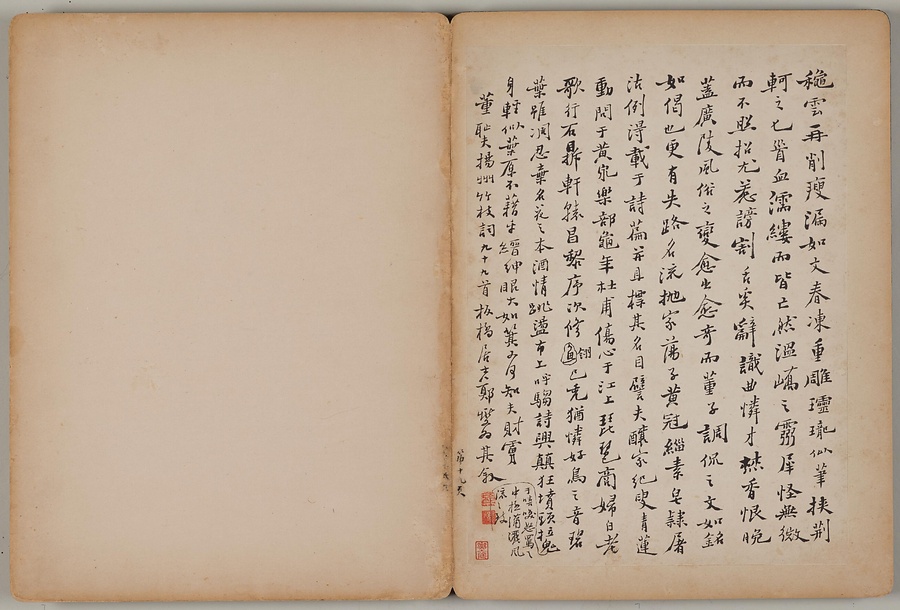 雲再削瘦漏如文春凍重雕瓏似筆挾荊
軻之匕首血濡縷而皆亡然溫嶠之犀怪無微
而不照招尤惹謗割舌奚辭識曲憐才焚香恨晚
蓋廣陵風俗之變愈出愈奇而董子調侃之文如銘
如偈也更有失路名流拋家蕩子黃冠緇素皂隸屠
沽例得載于詩篇并且標其名目譬夫釀家紀叟青蓮
動問于黃泉樂部龜年杜甫傷心于江上琵琶商婦白老
歌行石鼎軒轅昌黎序次修翎已禿猶憐好鳥之音碧
葉雖凋忍棄名花之本酒情跳盪市上呼騶詩興顛狂墳頭拉
身輕似葉原不藉乎縉紳眼大如箕又何知夫財虜
董恥夫揚州竹枝詞九十九首板橋居士鄭燮為其敘
第十九